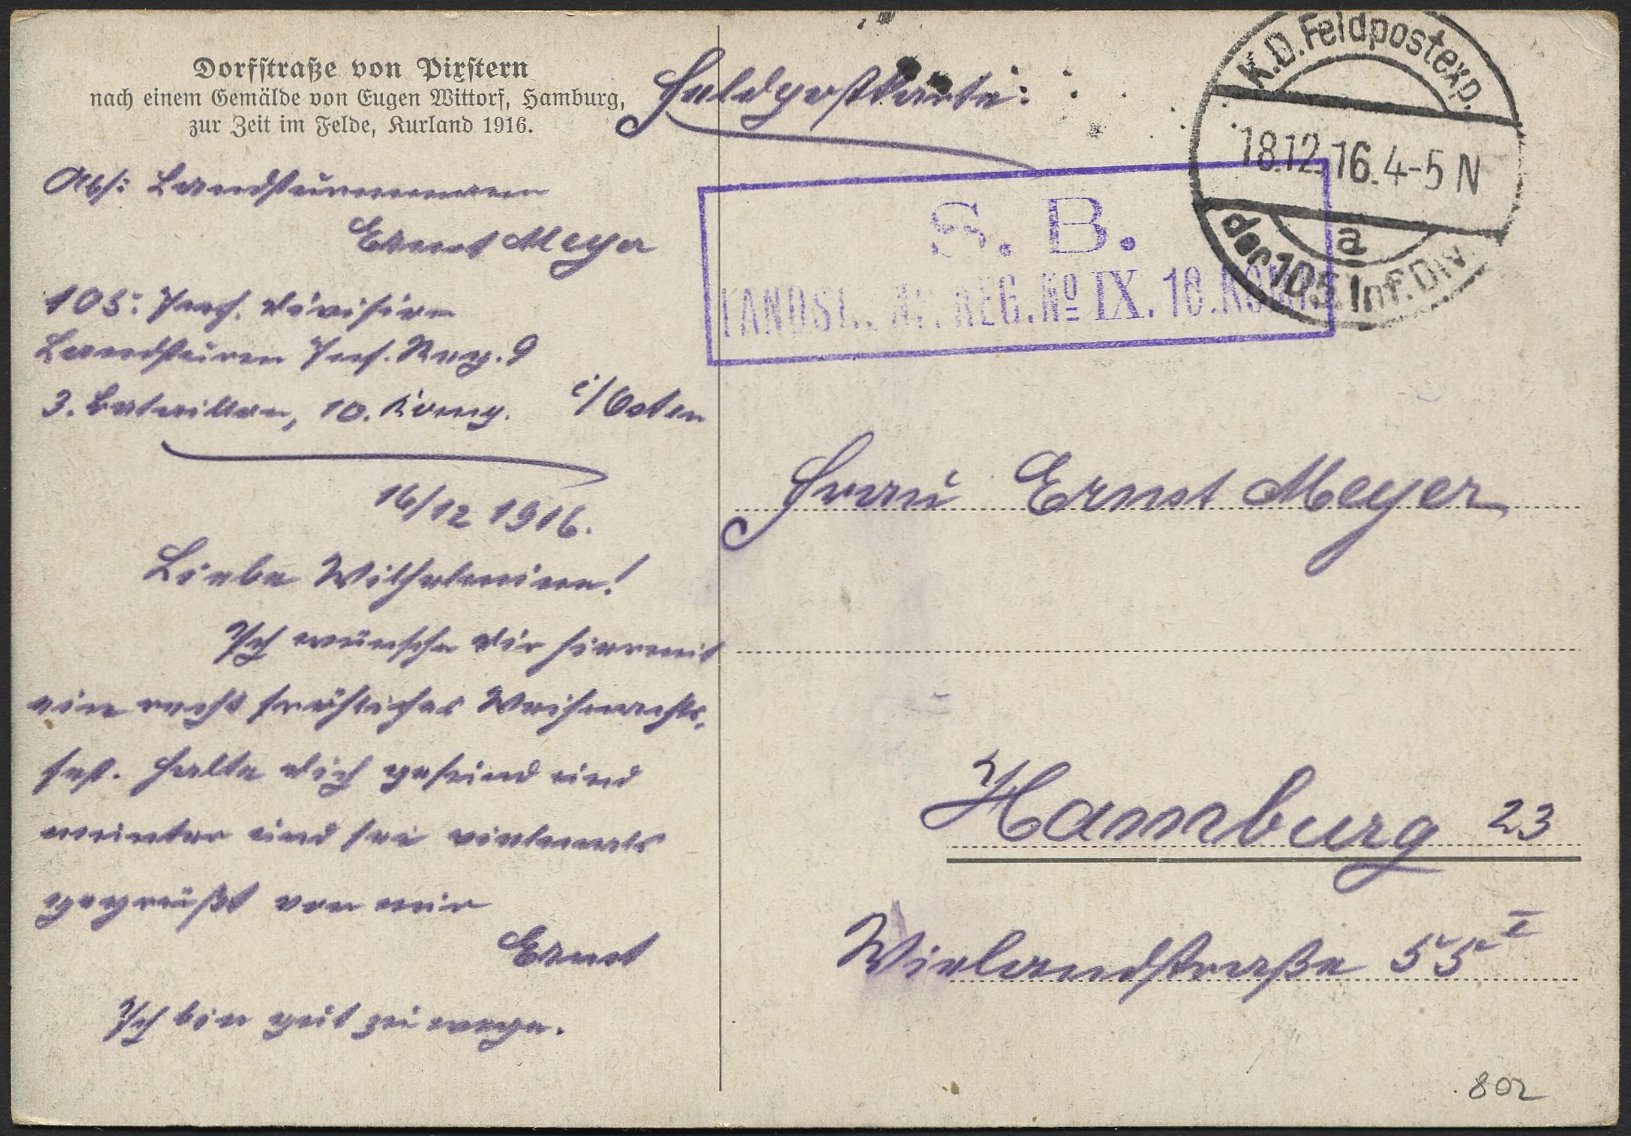 Dorfstraße von Pixstern
nach einem Gemälde von Eugen Wittorf, Hamburg,
zur Zeit im Felde, Kurland 1916.
Feldpostkarte.
K.D. Feldpostexp.
18.12.16. 4-5 N
a
der 105. Inf. Div.
S. B.
LANDST. INF. REG. No IX. 10. KOMP.
Abs: Landsturmmann
Ernst Meyer
105. Inf. Division
Landsturm Inf. Reg. 9
3. Bataillon, 10. Komp. i/Osten
16/12 1916.
Liebe Wilhelmine!
Ich wünsche Dir hiermit
ein recht fröhliches Weihnachts-
fest. Halte Dich gesund und
munter und sei vielmals
gegrüßt von mir
Ernst
Ich bin gut zu wege.
Frau Ernst Meyer
Hamburg 23
Wielandstraße 55 I
802